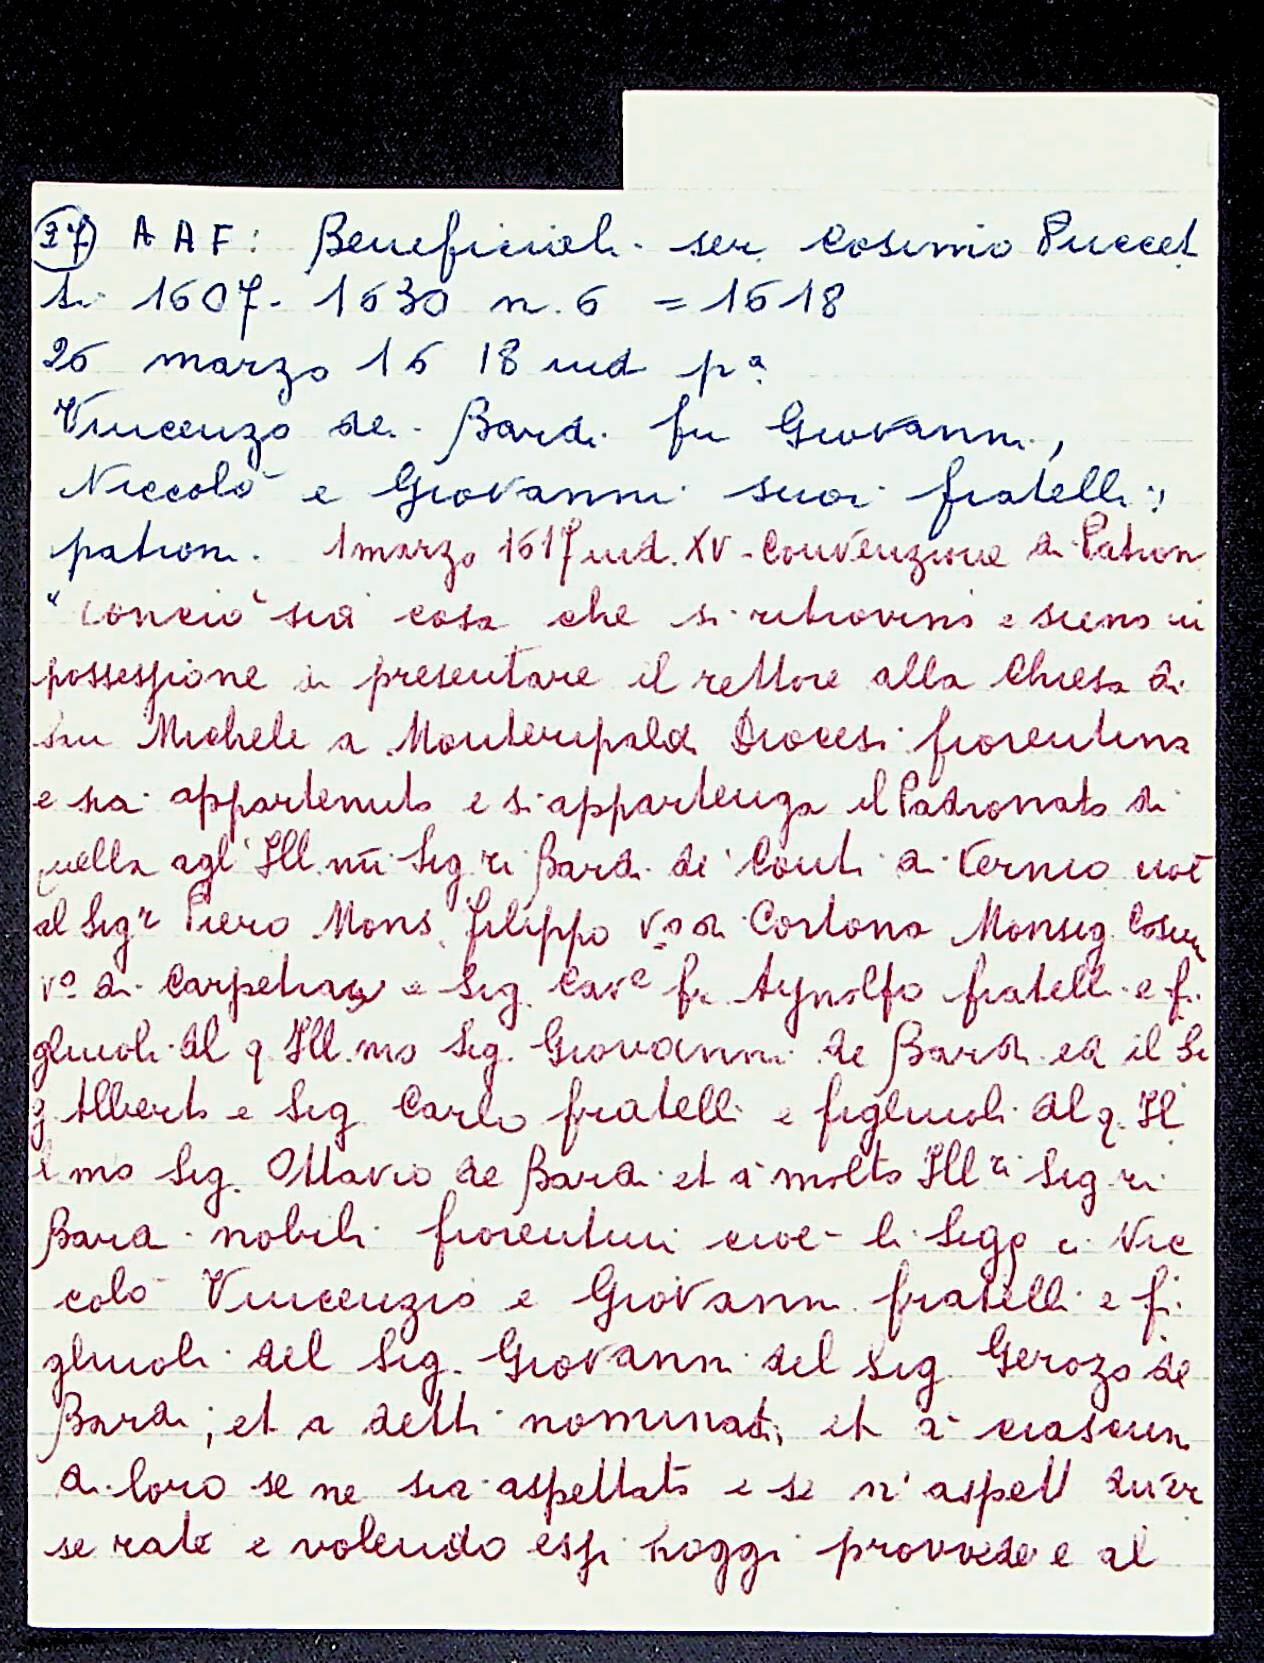 27) A A F: Beneficiali ser Cosimo Puccet
ti 1607-1630 n. 6 = 1618
26 marzo 1618 ind pª
Vincenzo de Bardi fu Giovanni,
Niccolò e Giovanni suoi fratelli,
patroni. 1 marzo 1617 ind. XV - Convenzione di Patron
"Conciò sia cosa che si ritrovino e sieno in
possessione di presentare il rettore alla Chiesa di
San Michele a Monteripaldi Diocesi fiorentina
e sia appartenuto e si appartenga il Padronato di
quella agl' Ill.mi Sig.ri Bardi de' Conti di Vernio cioè
al Sigr Piero Mons. Filippo Vo di Cortona Monsig. Cosim
Vo di Carpetras e Sig. Cave fr. Aynolfo fratelli e fi
gliuoli del q. Ill.mo Sig. Giovanni de Bardi ed il Si
g. Alberto e Sig. Carlo fratelli e figliuoli del q. Il
l.mo Sig. Ottavio de Bardi et a' molto Ill.ri Sig.ri
Bardi nobili fiorentini cioè li Sigg.ri Nic
colò Vincenzio e Giovanni fratelli e fi
gliuoli del Sig. Giovanni del Sig. Gerozo de
Bardi; et a detti nominati, et a ciascun
di loro se ne sia aspettato e se n' aspetti diver
se rate e volendo essi hoggi provvedere al